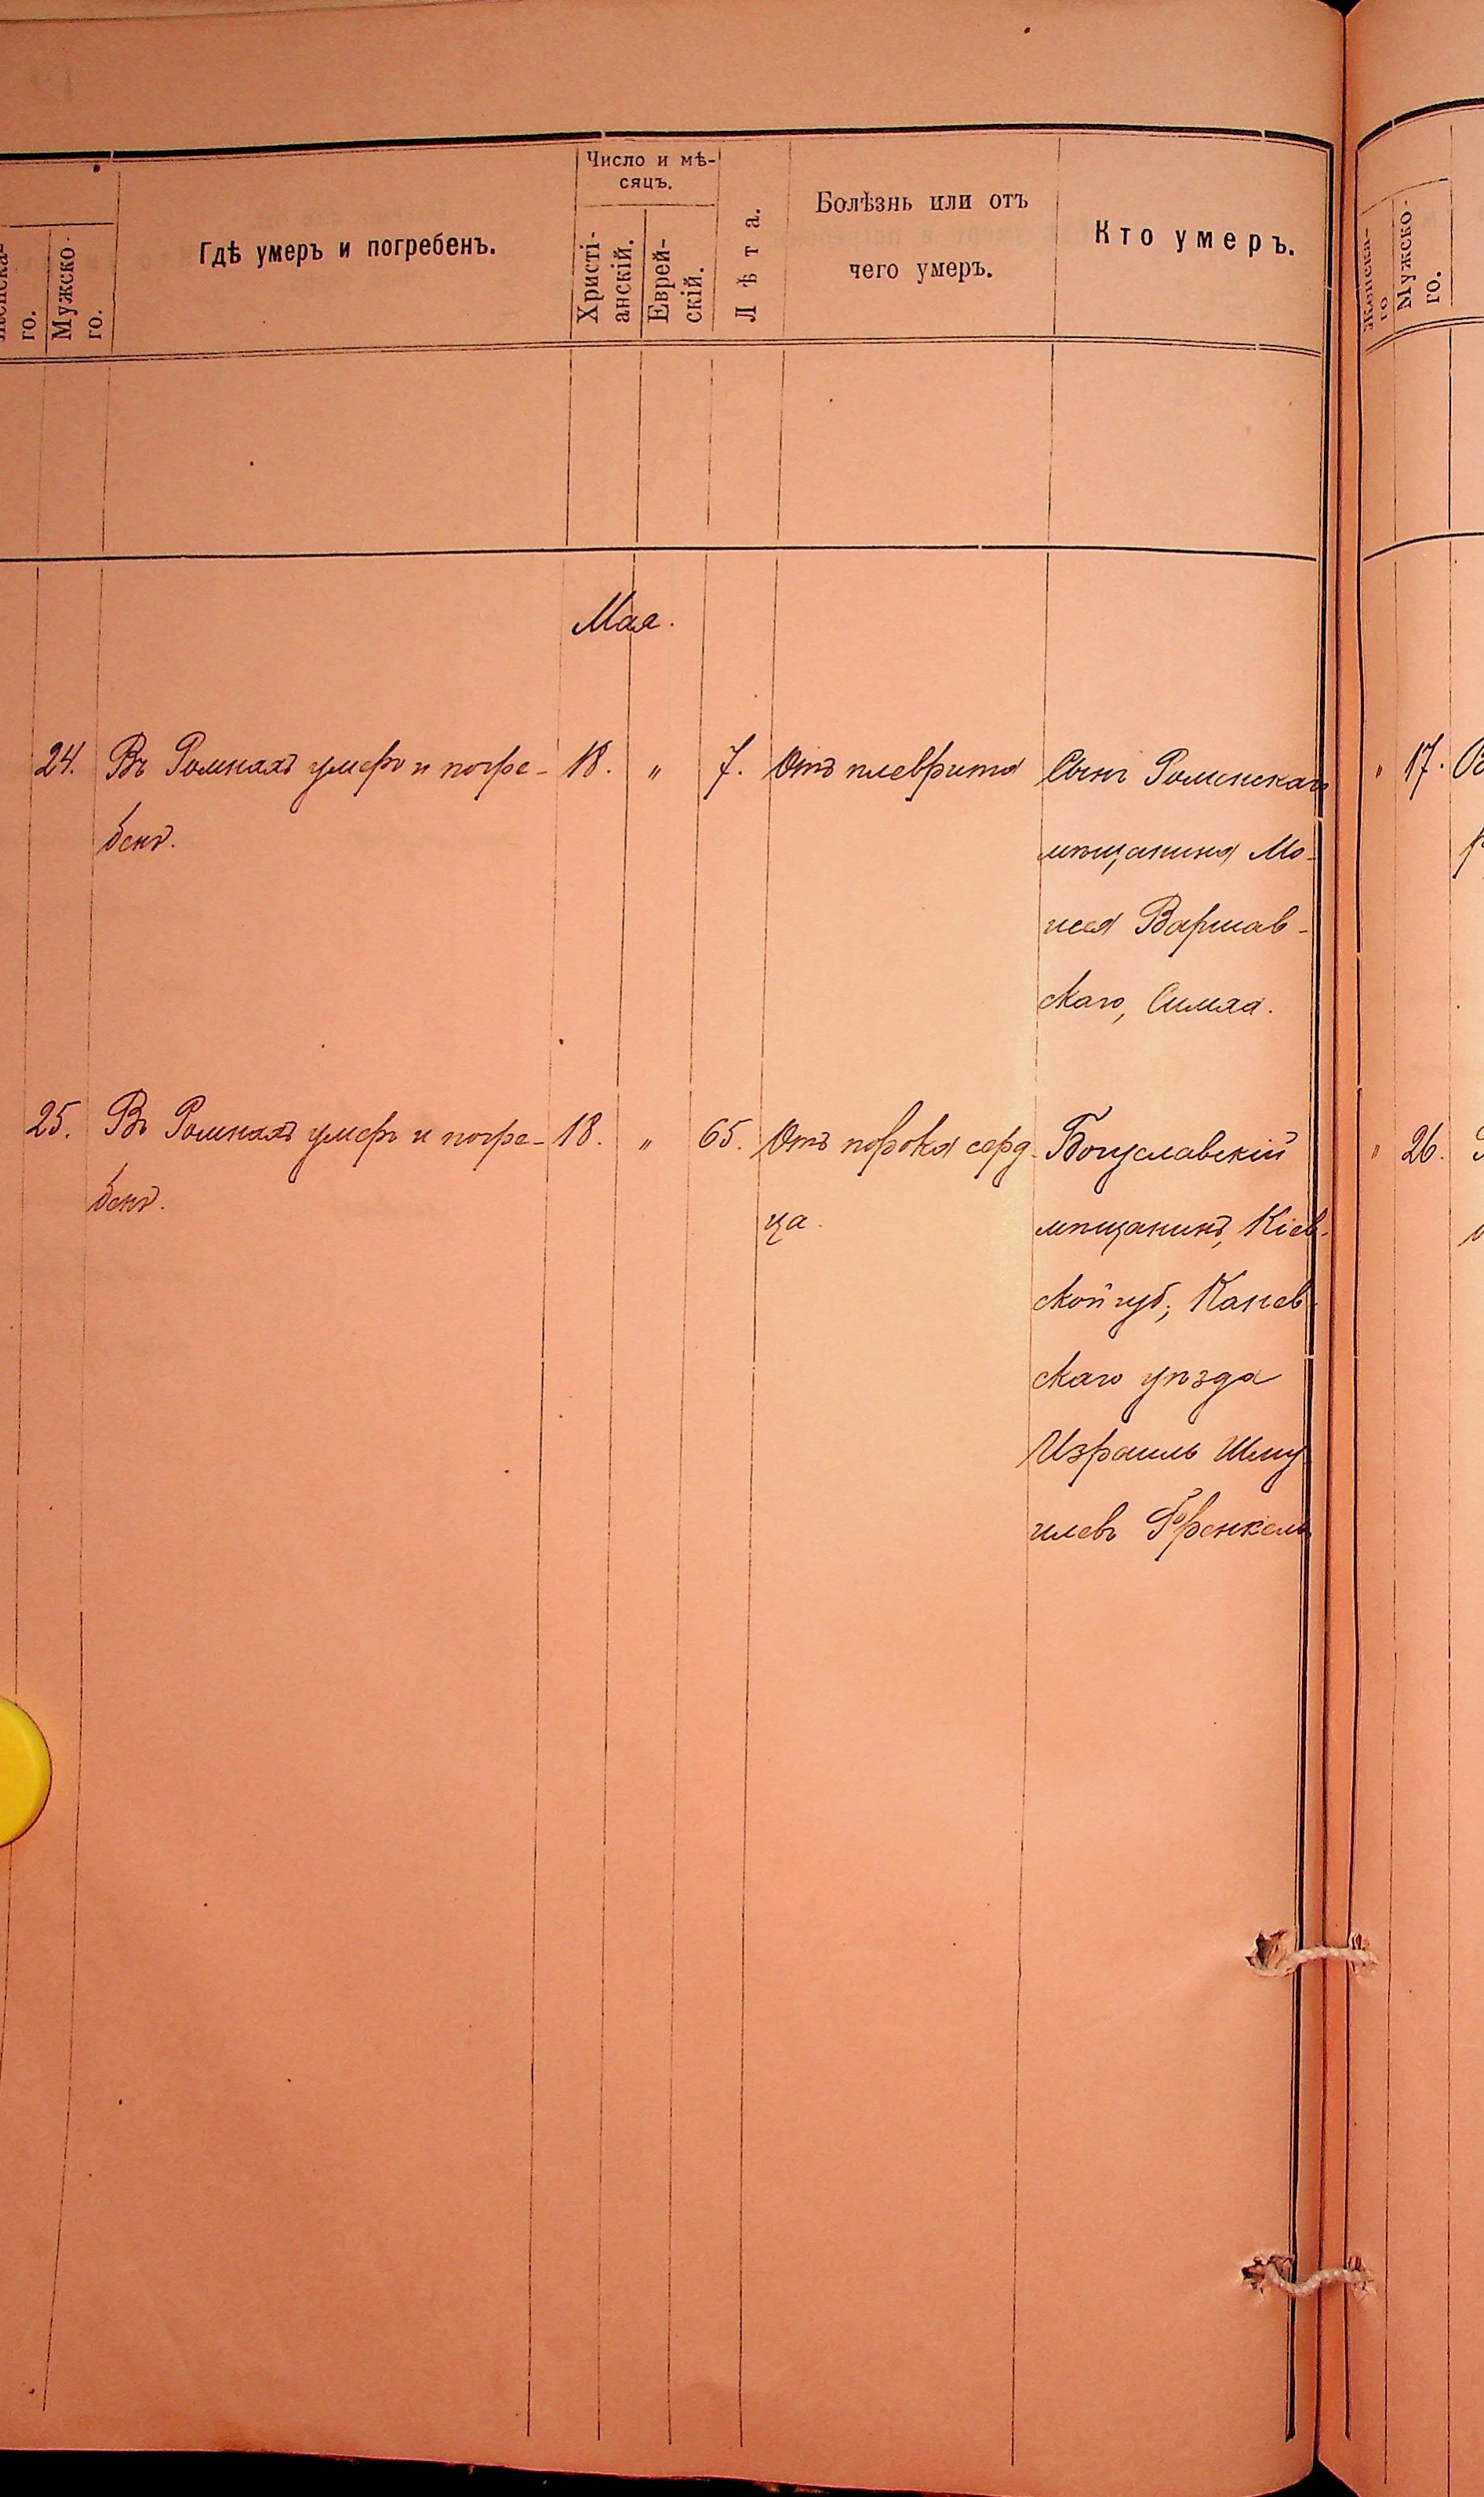 Женска-
го.
Мужско-
го.
Гдѣ умеръ и погребенъ.
Число и мѣ-
сяцъ.
Христі-
анскій.
Еврей-
скій.
Лѣта.
Болѣзнь или отъ
чего умеръ.
Кто умеръ.
Женска-
го
Мужско-
го.
Мая.
24. Въ Ромнахъ умеръ и погре- 18. " 7. Отъ плеврита Сынъ Роменскаго
бенъ. мѣщанина Мо-
исея Варшав-
скаго, Симха.
25. Въ Ромнахъ умеръ и погре- 18. " 65. Отъ порока серд- Богуславскій
бенъ. ца. мѣщанинъ, Кіев-
ской губ., Канев-
скаго уѣзда
Израиль Шму-
илевъ Френкель
" 17.
" 26.